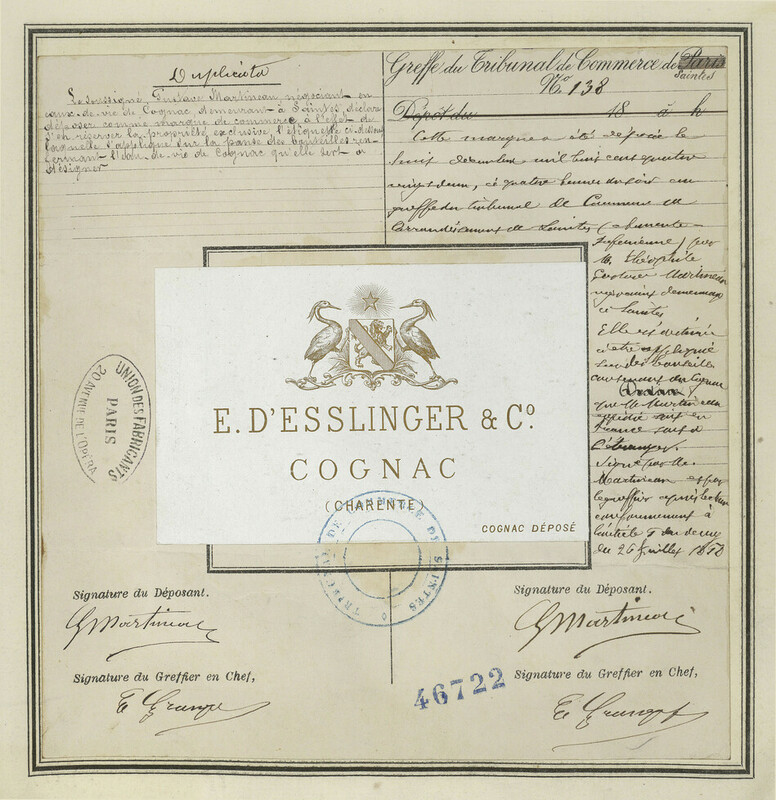 Duplicata
Le soussigné, Gustave Martineau, négociant en
eaux-de-vie de Cognac, demeurant à Saintes, déclare
déposer comme marque de commerce à l'effet de
s'en réserver la propriété exclusive l'étiquette ci-dessous
laquelle s'applique sur la panse des bouteilles ren-
fermant l'eau-de-vie de Cognac qu'elle sert à
désigner
Greffe du Tribunal de Commerce de Paris
Saintes
No 138
Dépôt du 18 à h
Cette marque a été déposée le
huit décembre mil huit cent quatre
vingt deux, à quatre heures du soir au
greffe du tribunal de Commerce de
l'arrondissement de Saintes (Charente-
Inférieure) par
M. Théophile
Gustave Martineau
négociant demeurant
à Saintes
Elle est destinée
à être appliquée
sur des bouteilles
contenant du Cognac
que M. Martineau
expédie soit en
France soit à
l'étranger.
Signé par M.
Martineau et par
le greffier après lecture
conformément à
l'article 5 du décret
du 26 juillet 1858
E. D'ESSLINGER & Co.
COGNAC
(CHARENTE)
COGNAC DÉPOSÉ
UNION DES FABRICANTS
PARIS
20 AVENUE DE L'OPÉRA
TRIBUNAL DE COMMERCE DE SAINTES
Signature du Déposant.
G Martineau
Signature du Greffier en Chef,
Signature du Déposant.
G Martineau
Signature du Greffier en Chef,
46722